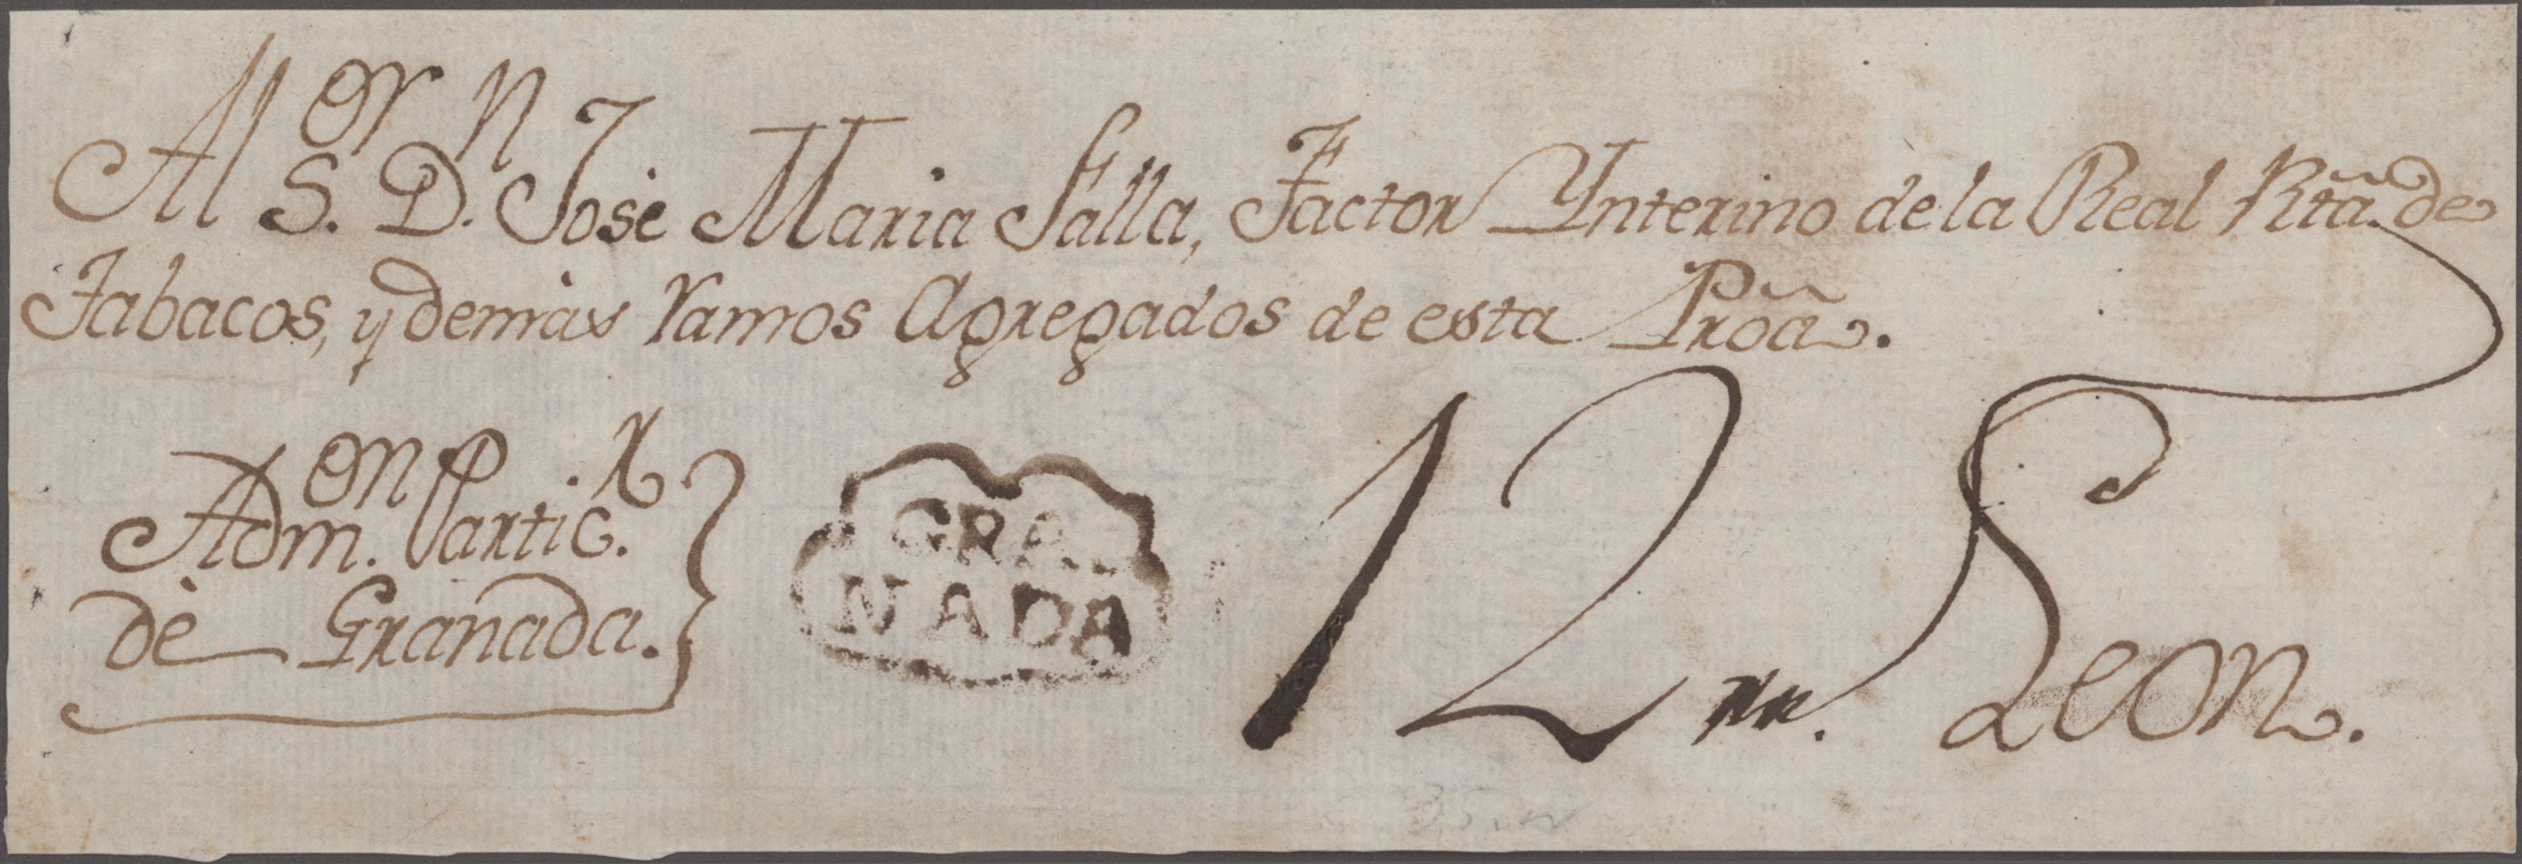 Al S.or D.n José Maria Salla, Factor Ynterino de la Real Rtã. de
Tabacos, y demàs ramos Agregados de esta Prõa.
Adm.on Partic.r
dè Granada.
GRA
NADA
12 rr.
Leon.